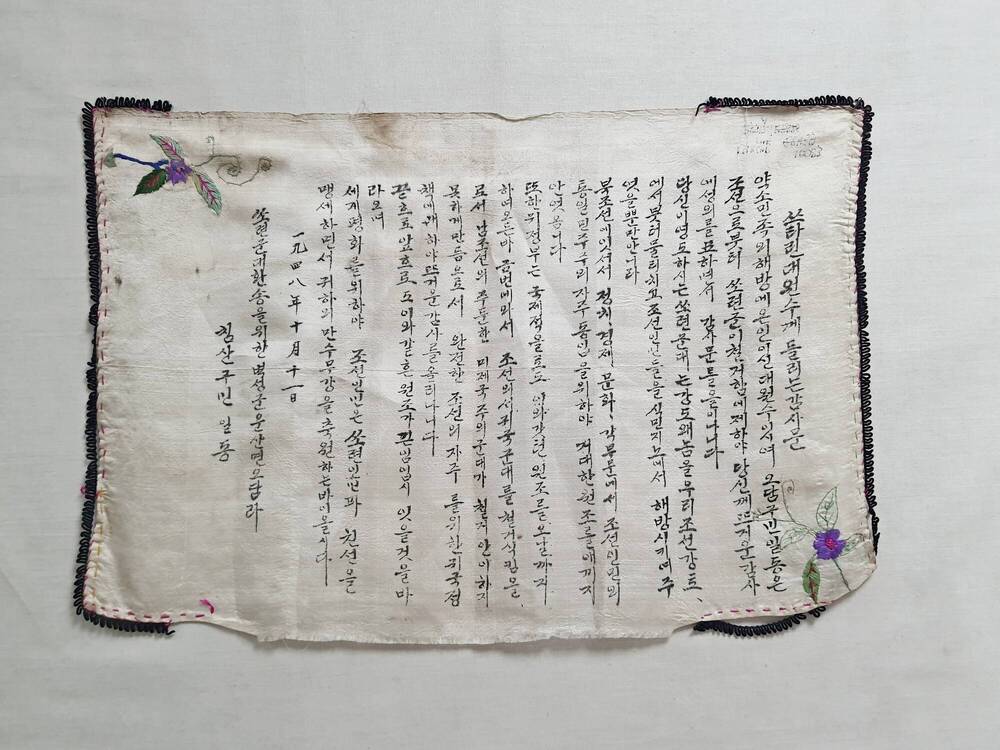 쓰딸린대원수게 들리는 감사문
약소민족의 해방에 은인이신 대원수이시여 오담구민일동은
조선으로부터 쏘련군이 철거함에 제하야 당신께 뜨거운 감사
에 성의를 표하며서 감사문을 들이나니다
당신이 영도하시는 쏘련군대는 강도왜놈을 우리 조선강토、
에서 붓터 물리치고 조선인민들을 식민지로에서 해방시키여주
엿을뿐만 안니라
북조선에 잇서서 정치、경제 문화、각부문에서 조선인민의
통일 민주주의 자주독립을 위하야 거대한 원조를 애끼지
안엿읍니다
또한 귀정부는 국제적을로도 여와 갓흔 원조를 오날까지
하며 온든바 금번에 와서 조선의서 귀국군대를 철거식킴을
로서 남조선의 주둔한 미제국주의군대가 철거 안이하지
못하게 만듬으로서 완전한 조선의 자주를 위한 귀국정
책에 대하야 뜨거운 감사를 올리나니다
끝흐로 앞흐로도 이와 같흔 원조가 끈임임시 잇을것을 바
라오며
세게평화를 위하야 조선인민은 쏘련인민과 친선을
맹세하면서 귀하의 만수무강을 축원하는바이올시다
一九四八年十月十一日
쏘련군대 환송을 위한 벽성군 운산면 오담리
침산구민 일동